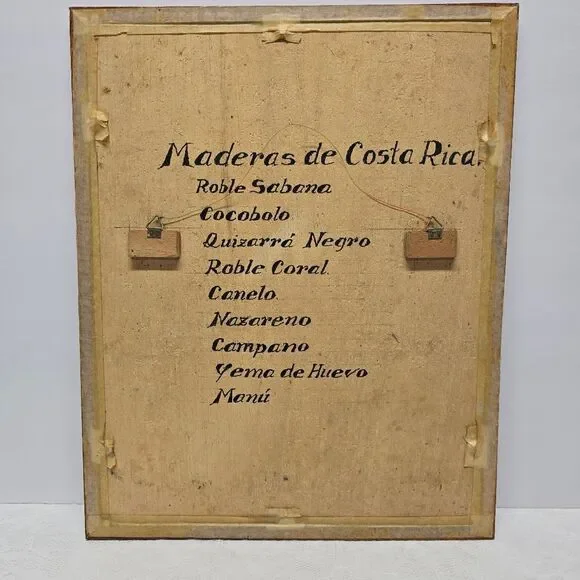 Maderas de Costa Rica.
Roble Sabana
Cocobolo
Quizarrá Negro
Roble Coral.
Canelo.
Nazareno
Campano
Yema de Huevo
Manú